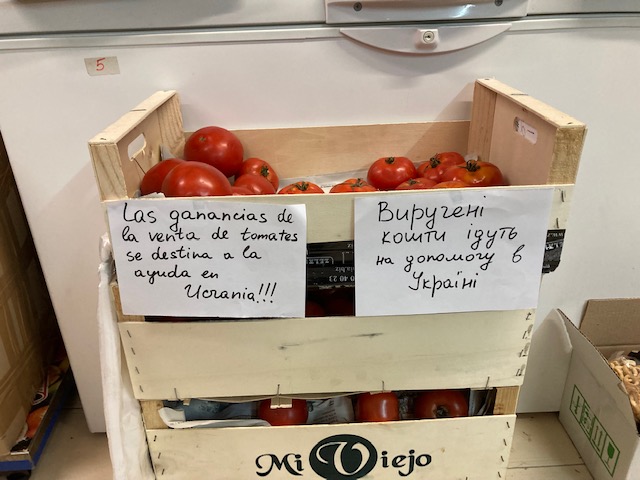 5
Las ganancias de
la venta de tomates
se destina a la
ayuda en
Ucrania!!!
Виручені
кошти ідуть
на допомогу в
Україні
Mi Viejo